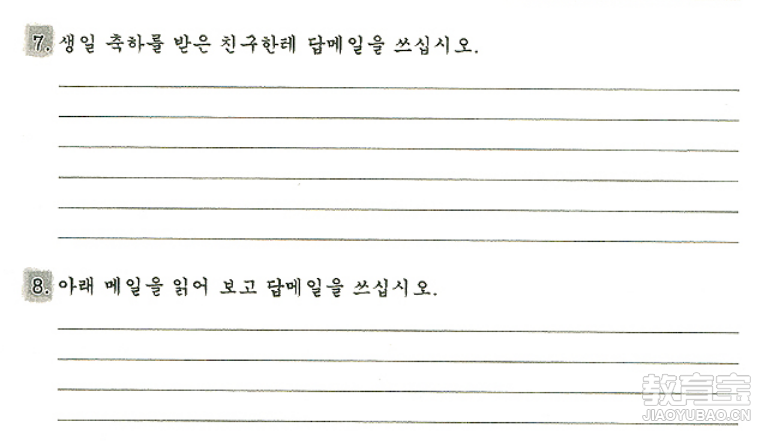 7. 생일 축하를 받은 친구한테 답메일을 쓰십시오.
8. 아래 메일을 읽어 보고 답메일을 쓰십시오.
教育宝
JIAOYUBAO.CN